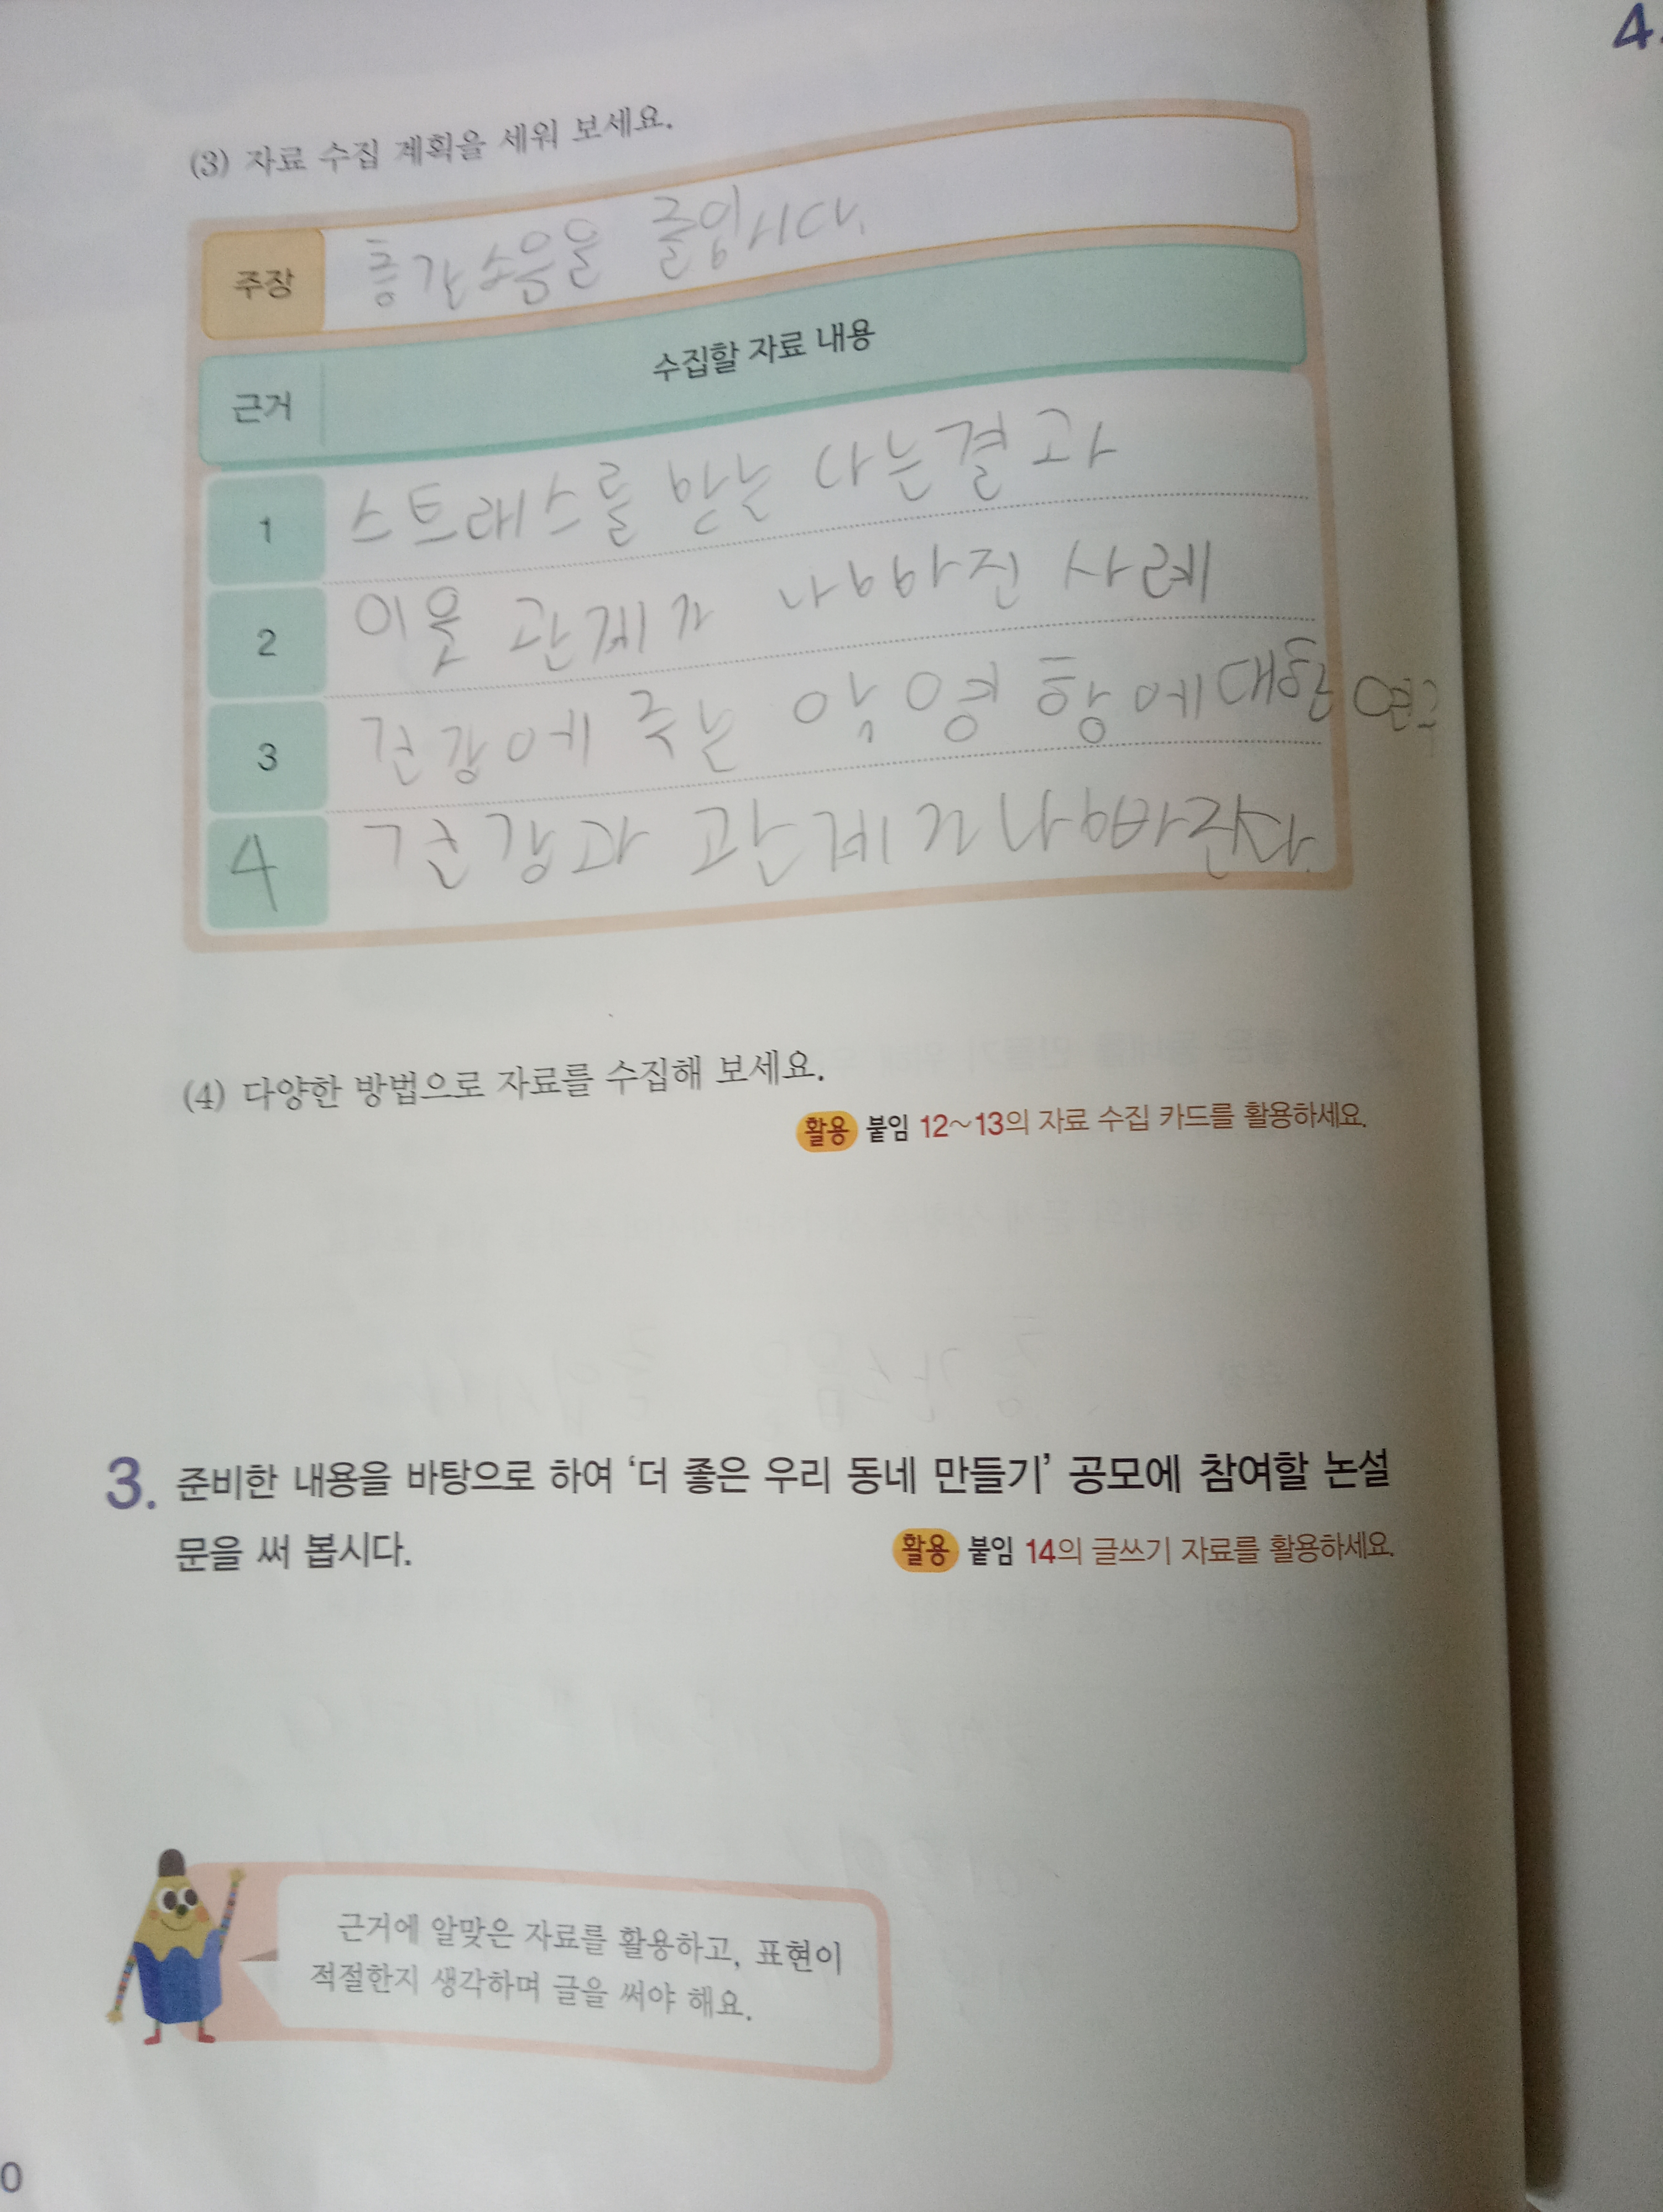 4.
(3) 자료 수집 계획을 세워 보세요.
주장 층간소음을 줄입시다.
근거 수집할 자료 내용
1 스트래스를 받는 다는결과
2 이웃 관계가 나빠진 사례
3 건강에 주는 악영향에대한 연구
4 건강과 관계가나빠진다.
(4) 다양한 방법으로 자료를 수집해 보세요.
활용 붙임 12~13의 자료 수집 카드를 활용하세요.
3. 준비한 내용을 바탕으로 하여 ‘더 좋은 우리 동네 만들기’ 공모에 참여할 논설
문을 써 봅시다.
활용 붙임 14의 글쓰기 자료를 활용하세요.
근거에 알맞은 자료를 활용하고, 표현이
적절한지 생각하며 글을 써야 해요.
0